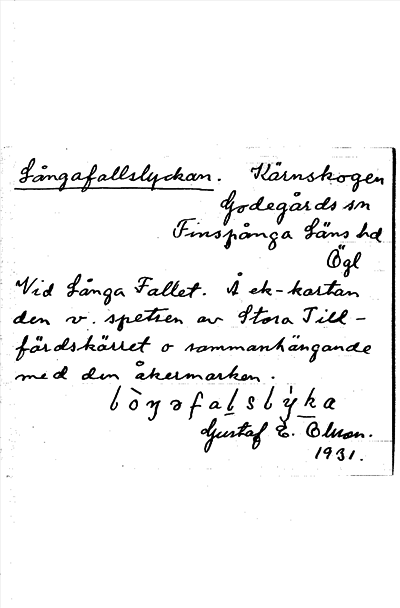 Långafallslyckan. Kärnskogen
Godegårds sn
Finspånga Läns hd
Ögl
Vid Långa Fallet. Å ek-kartan
den v. spetsen av Stora Till-
färdskärret o sammanhängande
med den åkermarken.
lòŋəfalslýka
Gustaf E. Olson.
1931.